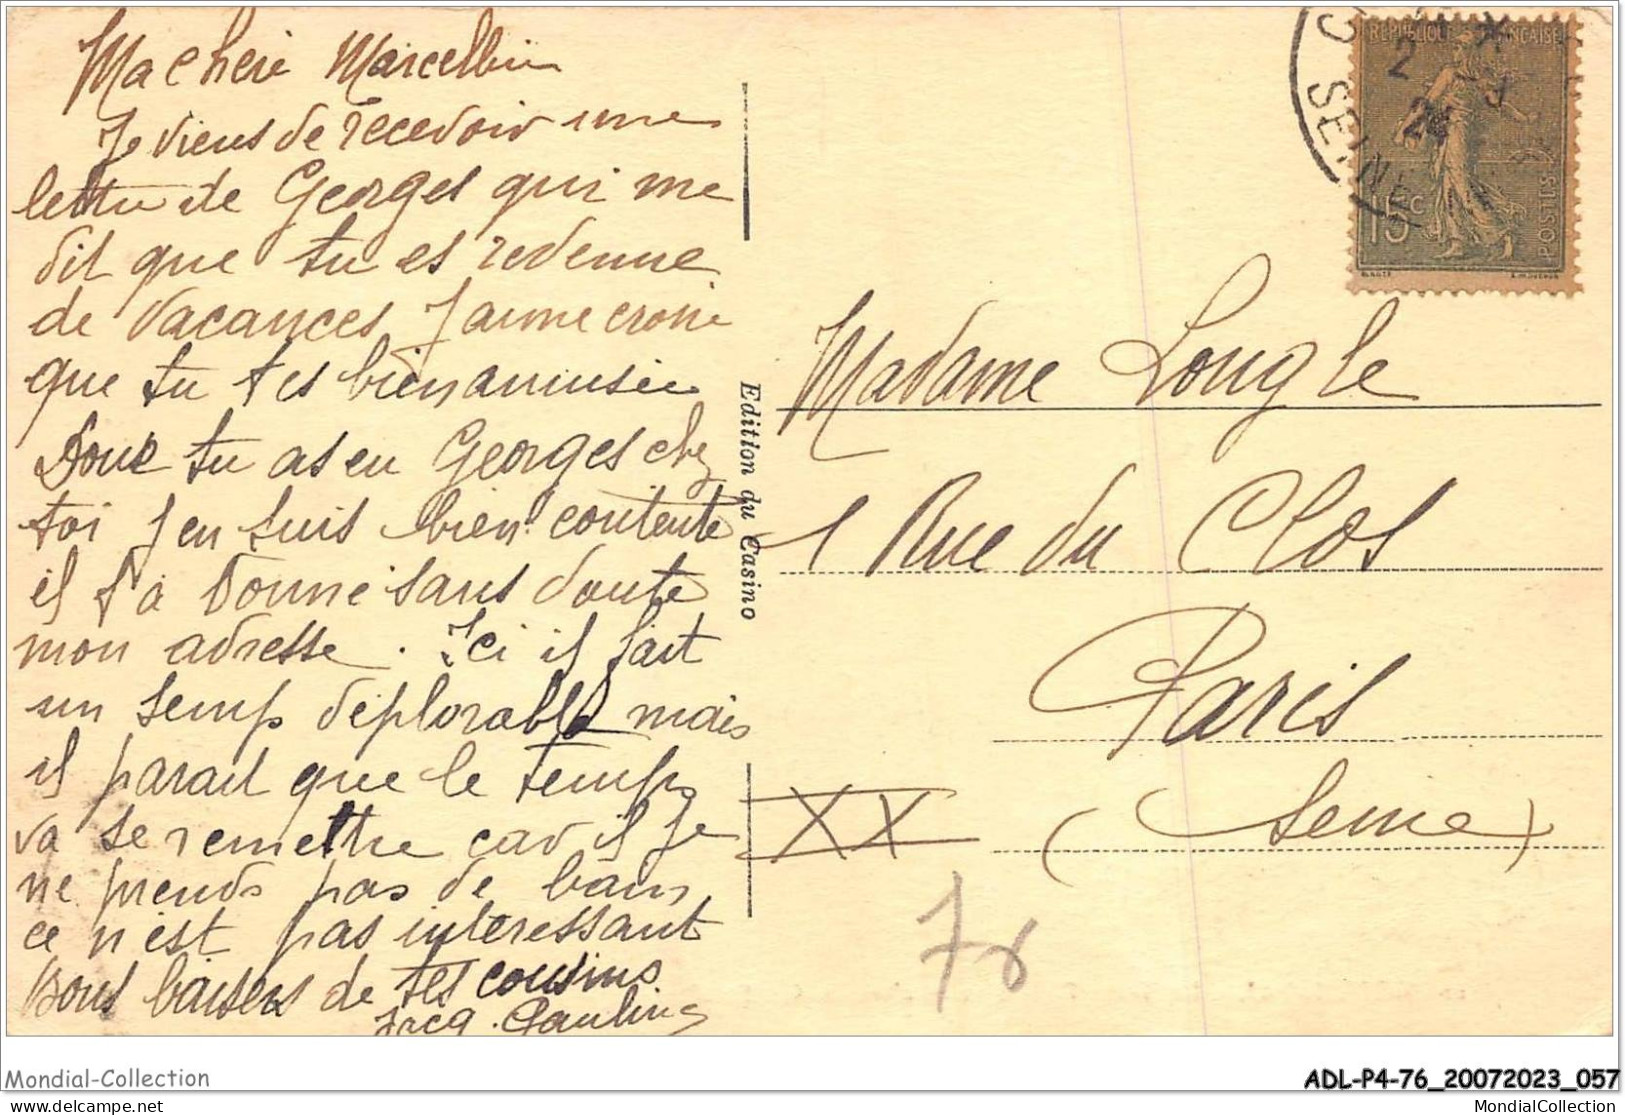 Ma cheri Marcelline
Je viens de recevoir une
lettre de Georges qui me
dit que tu es revenue
de vacances J'aime croire
que tu t es bien amusée
Donc tu as eu Georges chez
toi J en suis bien contente
il t'a donné sans doute
mon adresse. Ici il fait
un temp déplorable mais
il parait que le temps
va se remettre car si je
ne prends pas de bains
ce n'est pas interessant
Bons baisers de tes cousins
Edition du Casino
REPUBLIQUE FRANÇAISE
15c
POSTES
SEINE
Madame Longle
1 Rue du Clos
Paris
XX
(Seine)
76
Mondial-Collection
ADL-P4-76_20072023_057
MondialCollection
www.delcampe.net